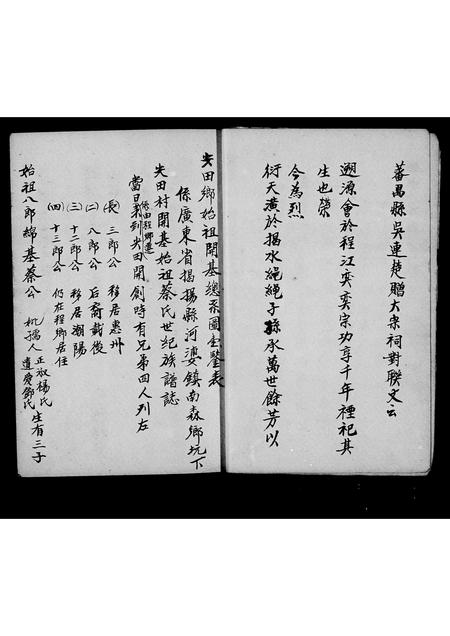 蕃禺縣吳連楚贈大宗祠對聯文云
遡源會於程江奕奕宗功享千年禋祀其
生也榮
今為烈
衍天潢於揭水繩繩子孫永萬世餘芳以
尖田鄉始祖開基總系圖全鑒表
係廣東省揭揚縣河婆鎮南森鄉坑下
尖田村開基始祖蔡氏世紀族譜誌
係由程鄉遷
當日來到尖田開創時有兄弟四人列左
(長) 三郎公 移居惠州
(二) 八郎公 后裔載後
(三) 十二郎公 移居潮陽
(四) 十三郎公 仍在程鄉居住
始祖八郎綿基蔡公 机孺人 正淑楊氏 遺愛鄧氏 生有三子